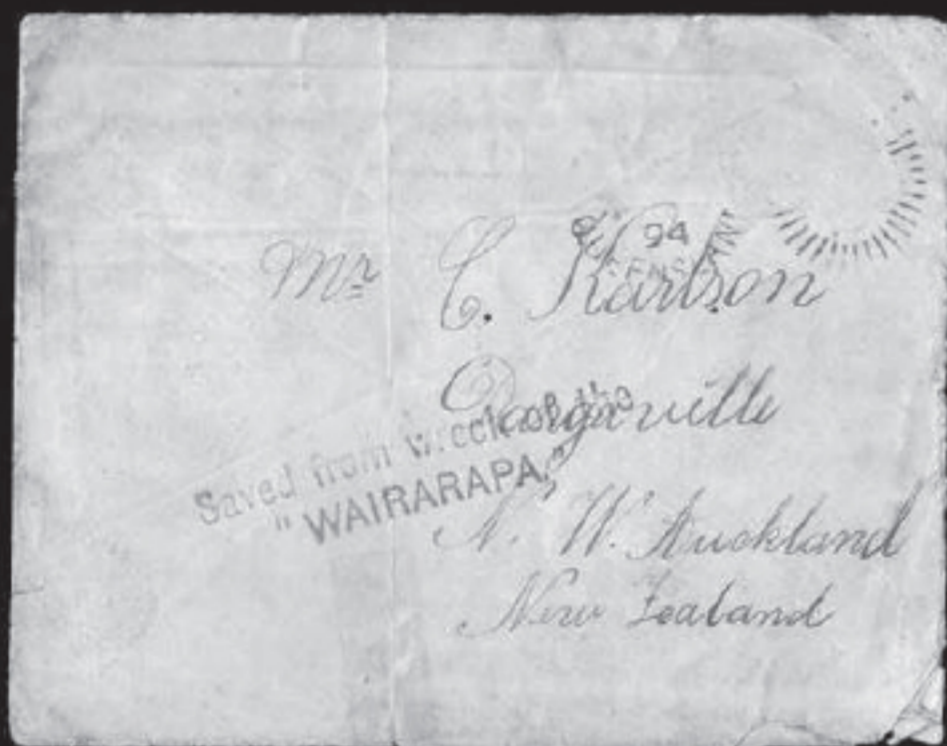 94
Mr C. Karlson
Dargaville
Saved from wreck of the
"WAIRARAPA."
N. W. Auckland
New Zealand